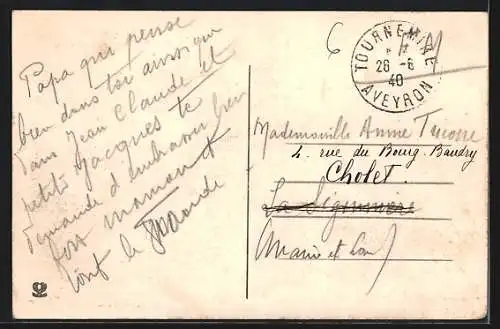 Papa qui pense
bien dans toi ainsi que
dans Jean Claude et
petit Jacques te
demande d'embrasser bien
fort maman et
tout le monde
6
TOURNEMIRE
26 -6
40
AVEYRON
Mademoiselle Anne
4. rue du Bourg-Baudry
Cholet.
Maine et Loire